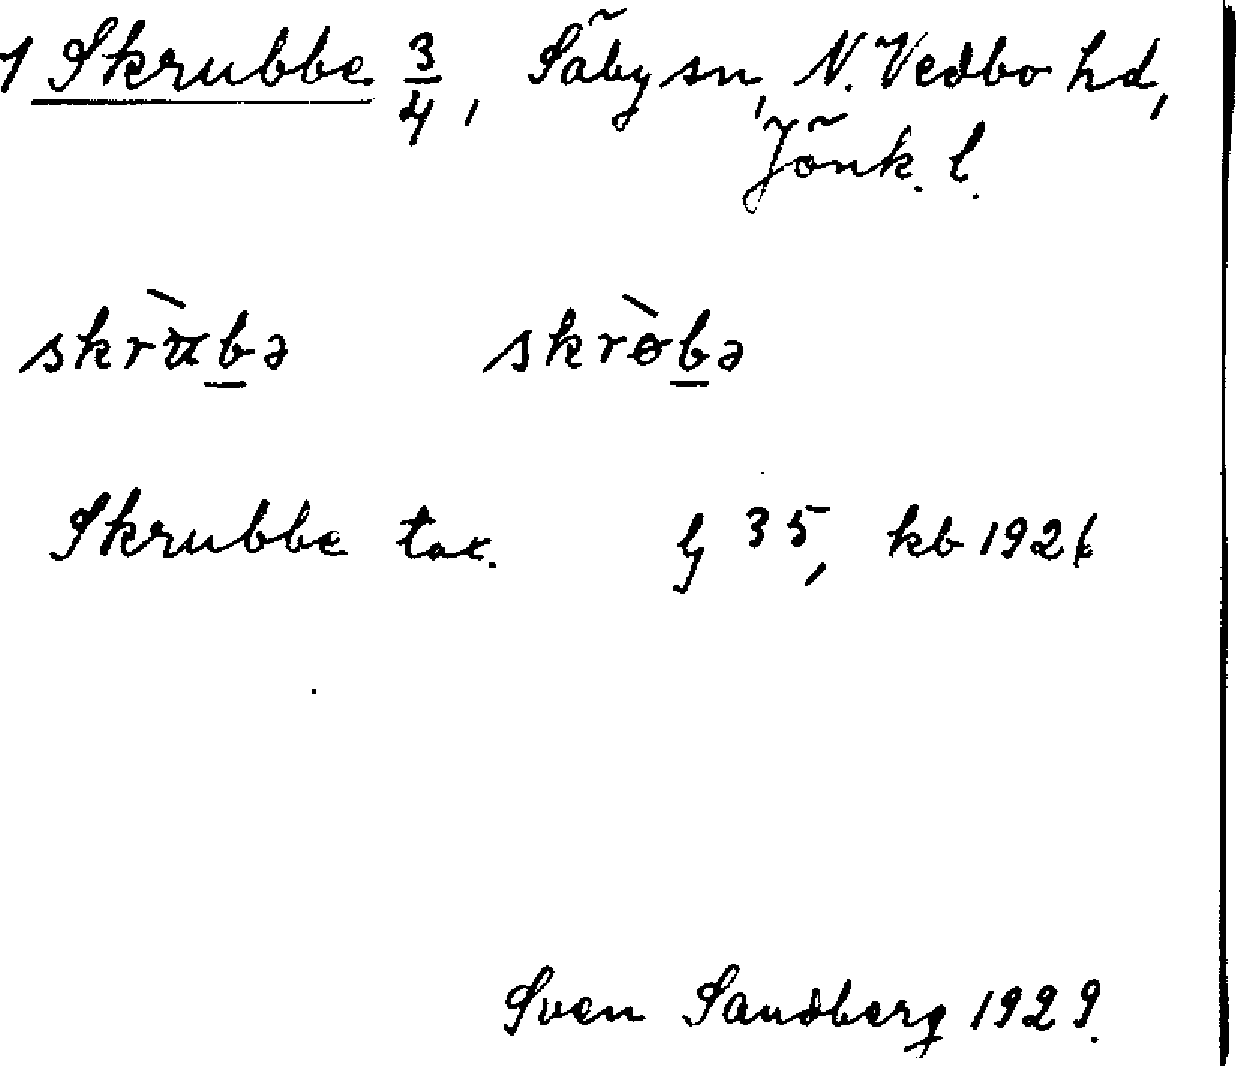 1 Skrubbe 3/4, Säby sn, N. Vedbo hd,
Jönk. l.
skrùbə skròbə
Skrubbe tax. lj 35, kb 1926
Sven Sandberg 1929.